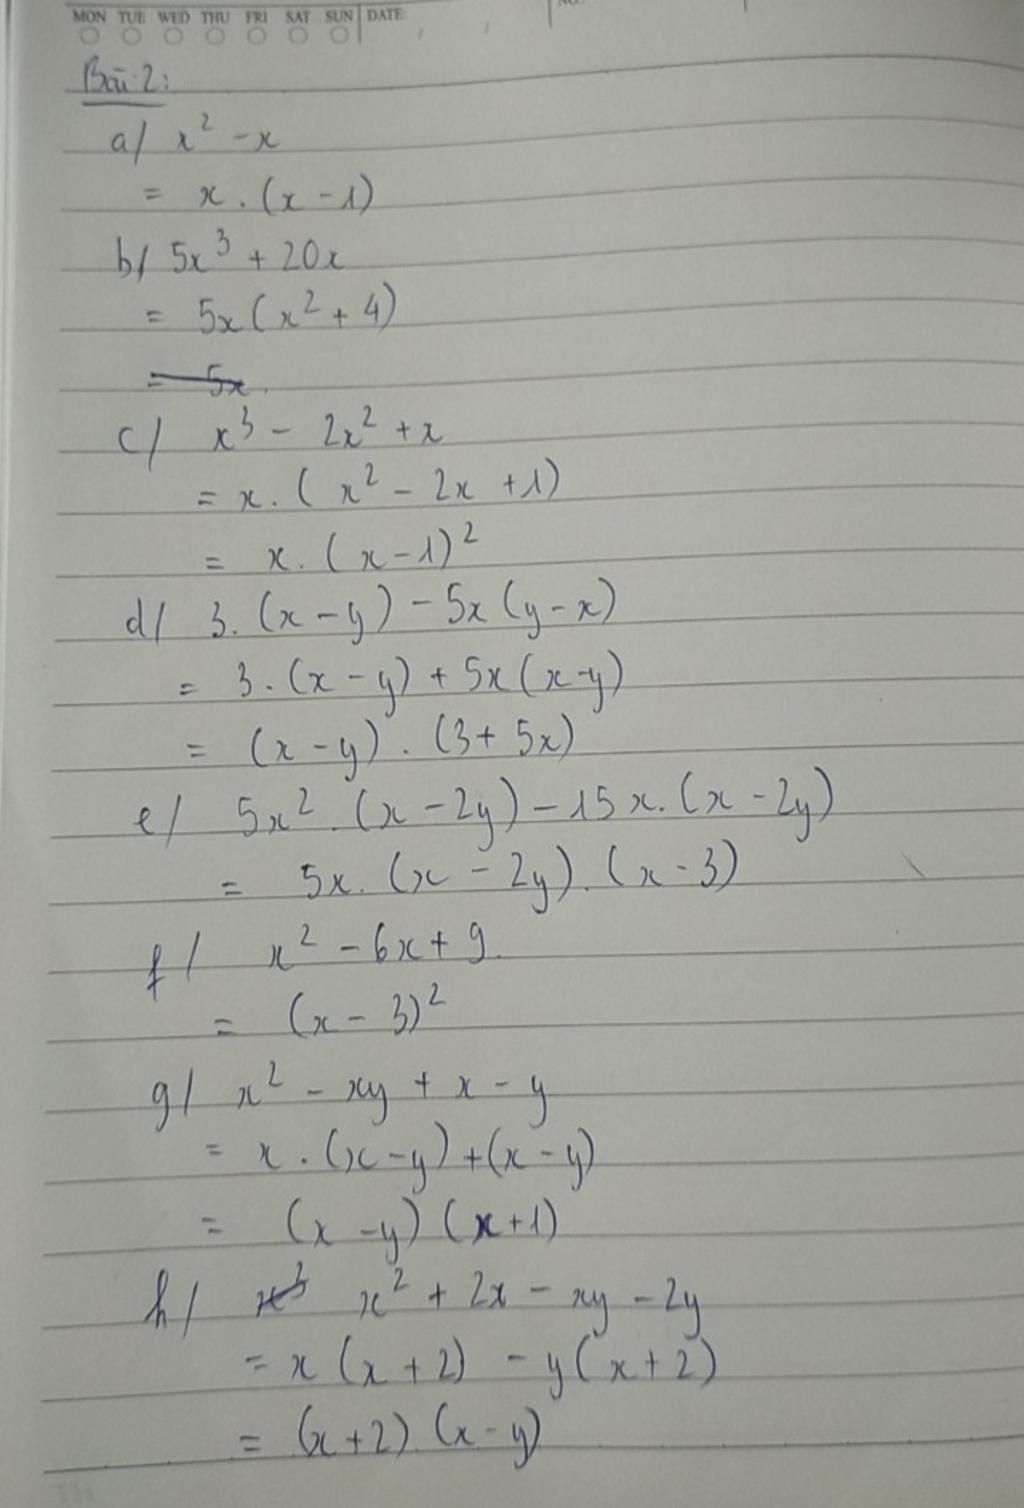 MON TUE WED THU FRI SAT SUN DATE
Bài 2:
a/ x² - x
= x . (x - 1)
b/ 5x³ + 20x
= 5x (x² + 4)
= 5x
c/ x³ - 2x² + x
= x . (x² - 2x + 1)
= x . (x - 1)²
d/ 3. (x - y) - 5x (y - x)
= 3 . (x - y) + 5x (x - y)
= (x - y) . (3 + 5x)
e/ 5x² . (x - 2y) - 15x . (x - 2y)
= 5x . (x - 2y) . (x - 3)
f/ x² - 6x + 9
= (x - 3)²
g/ x² - xy + x - y
= x . (x - y) + (x - y)
= (x - y) (x + 1)
h/ x³ x² + 2x - xy - 2y
= x (x + 2) - y (x + 2)
= (x + 2) (x - y)